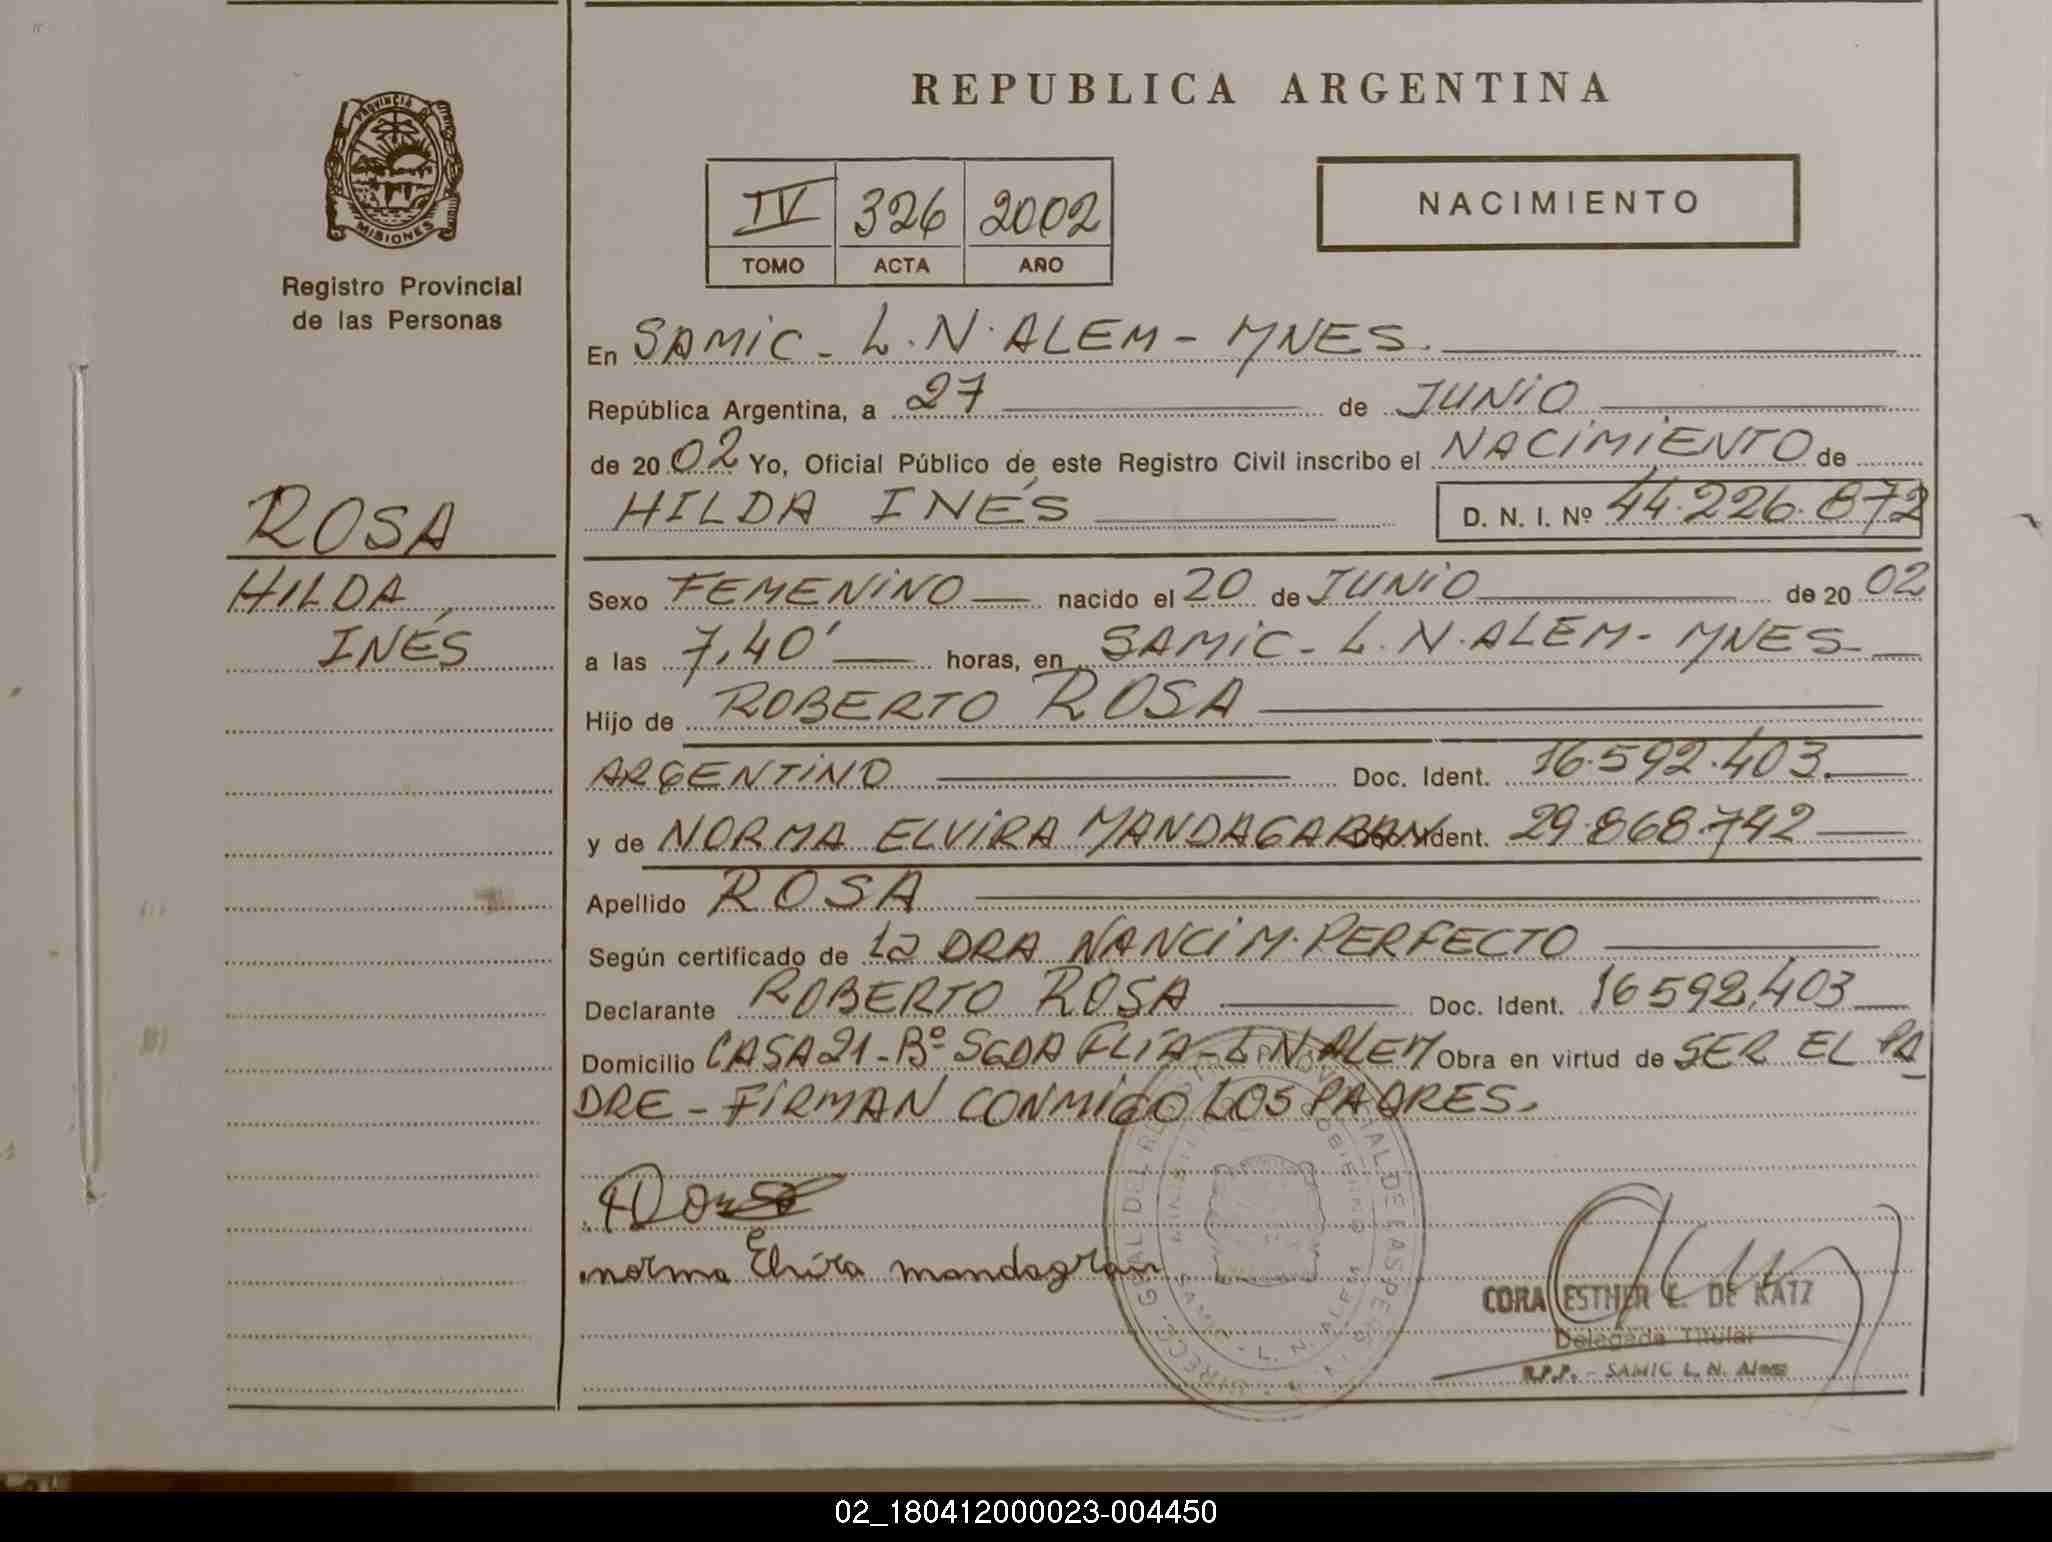 PROVINCIA DE
MISIONES
Registro Provincial
de las Personas
ROSA
HILDA
INÉS
REPUBLICA ARGENTINA
IV 326 2002
TOMO ACTA AÑO
NACIMIENTO
En SAMIC - L.N. ALEM - MNES.
República Argentina, a 27 de JUNIO
de 20 02 Yo, Oficial Público de este Registro Civil inscribo el NACIMIENTO de
HILDA INÉS D. N. I. Nº 44.226.872
Sexo FEMENINO nacido el 20 de JUNIO de 20 02
a las 7,40' horas, en SAMIC - L.N. ALEM - MNES
Hijo de ROBERTO ROSA
ARGENTINO Doc. Ident. 16.592.403
y de NORMA ELVIRA MANDAGARAN Doc. Ident. 29.868.742
Apellido ROSA
Según certificado de La DRA NANCI M. PERFECTO
Declarante ROBERTO ROSA Doc. Ident. 16 592.403
Domicilio CASA 21 - Bº SGDA FLIA - L N ALEM Obra en virtud de SER EL PA
DRE - FIRMAN CONMIGO LOS PADRES.
norma Elvira mandagran
CORA ESTHER E. DE KATZ
Delegada Titular
R.P.P. - SAMIC L. N. Alem
02_180412000023-004450